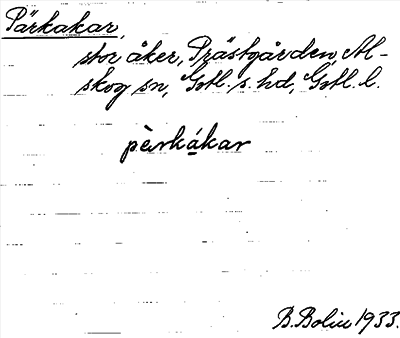 Pärkakar,
stor åker, Prästgården, Al-
skog sn, Gotl. s. hd, Gotl. l.
pèrkákar
B. Bolin 1933.